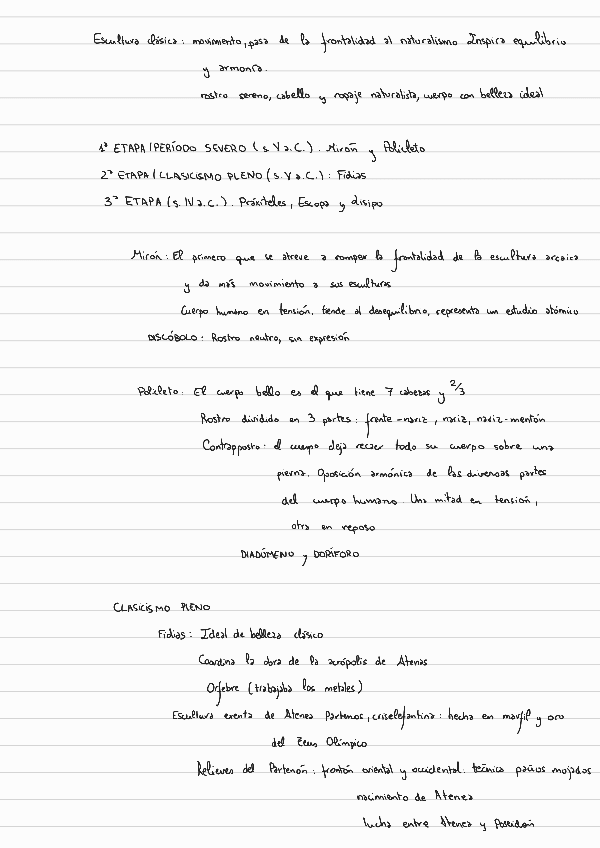 Escultura clásica: movimiento, pasa de la frontalidad al naturalismo Inspira equilibrio
y armonía.
rostro sereno, cabello y ropaje naturalista, cuerpo con belleza ideal
1ª ETAPA/PERÍODO SEVERO (s. V a.C.). Mirón y Policleto
2ª ETAPA/CLASICISMO PLENO (s. V a.C.): Fidias
3ª ETAPA (s. IV a.C.). Práxiteles, Escopa y Lisipo
Mirón: El primero que se atreve a romper la frontalidad de la escultura arcaica
y da más movimiento a sus esculturas
Cuerpo humano en tensión. tende al desequilibrio, representa un estudio atómico
DISCÓBOLO: Rostro neutro, sin expresión
Policleto: El cuerpo bello es el que tiene 7 cabezas y 2/3
Rostro dividido en 3 partes: frente-nariz, nariz, nariz-mentón
Contrapposto: el cuerpo deja recaer todo su cuerpo sobre una
pierna. Oposición armónica de las diversas partes
del cuerpo humano. Una mitad en tensión,
otra en reposo
DIADÚMENO y DORÍFORO
CLASICISMO PLENO
Fidias: Ideal de belleza clásico
Coordina la obra de la acrópolis de Atenas
Orfebre (trabajaba los metales)
Escultura exenta de Atenea Partenos, criselefantina: hecha en marfil y oro
del Zeus Olímpico
Relieves del Partenón: frontón oriental y occidental. técnica paños mojados
nacimiento de Atenea
lucha entre Atenea y Poseidón